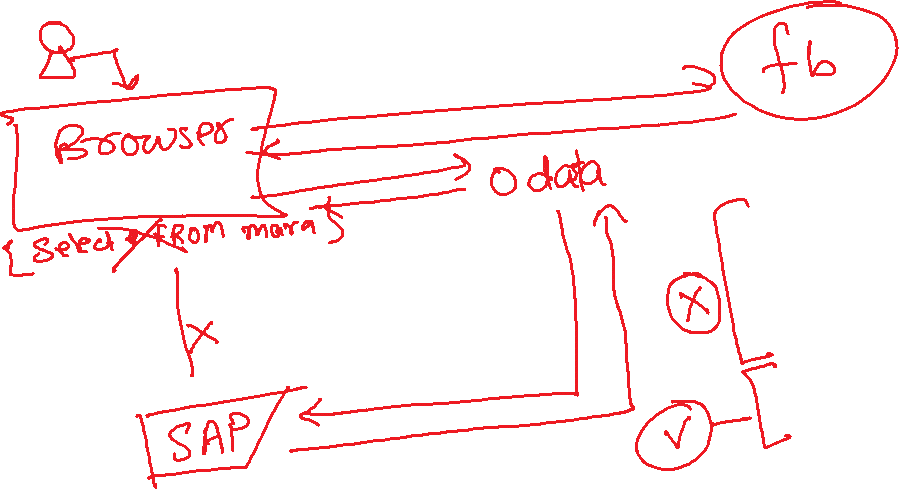 fb
Browser
O data
{ Select * FROM mara }
X
X
SAP
√